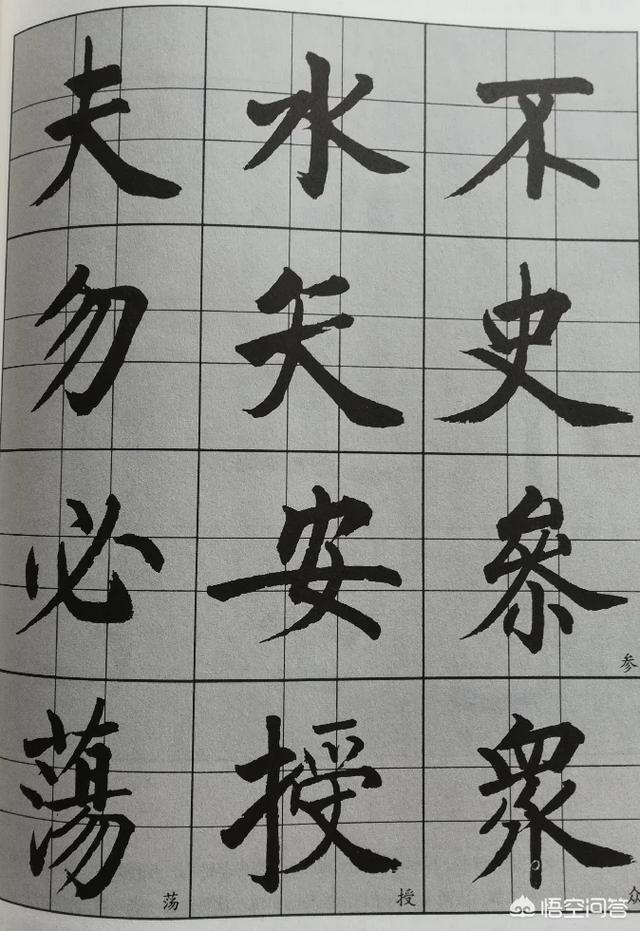 夫 水 不
勿 矢 史
必 安 參
参
蕩 授 眾
荡 授 众
悟空问答